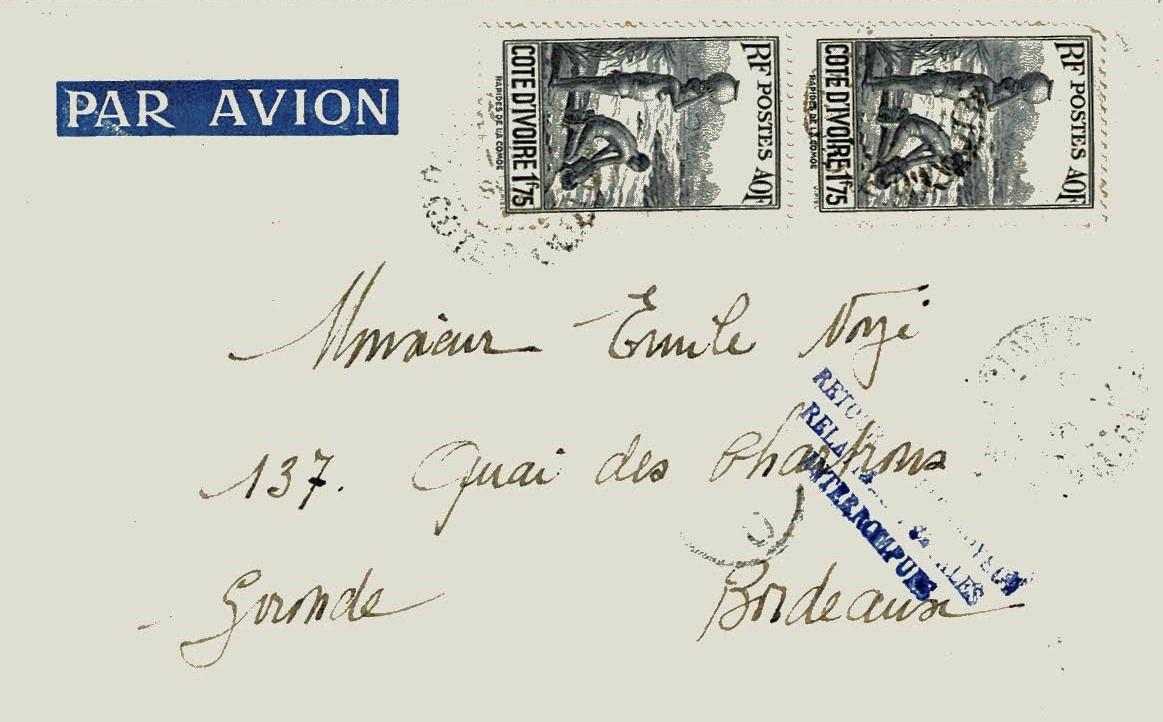 PAR AVION
RF POSTES AOF
COTE D'IVOIRE 1F75
RAPIDES DE LA COMOE
RF POSTES AOF
COTE D'IVOIRE 1F75
RAPIDES DE LA COMOE
COTE
Monsieur Emile
137. Quai des Chartrons
Gironde Bordeaux
RETOUR
INTERROMPUES